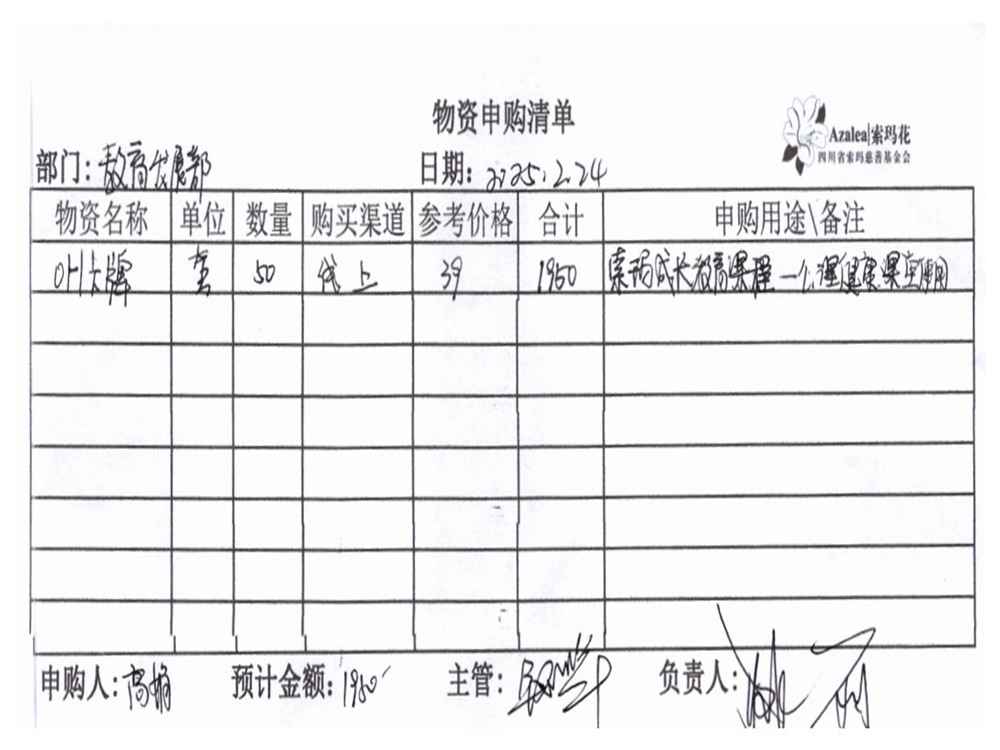 物资申购清单
Azalea|索玛花
四川省索玛慈善基金会
部门：教育发展部 日期：2025.2.24
物资名称 单位 数量 购买渠道 参考价格 合计 申购用途\备注
OH卡牌 套 50 线上 39 1950 索玛成长教育课程一心理健康课室用
申购人：高 预计金额：1950 主管： 负责人：